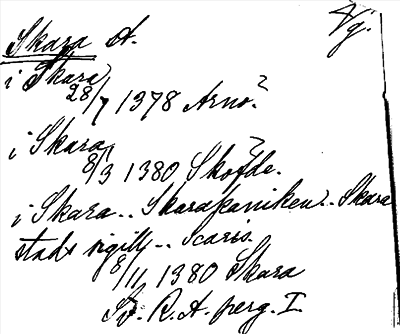 Vg.
Skara A.
i Skara
28/7 1378 Arno?
i Skara
8/3 1380 Skofde.
i Skara.. Skarakaniken.. Skara
stads sigill.. Scaris.
8/11 1380 Skara
Sv. R. A. perg. I.